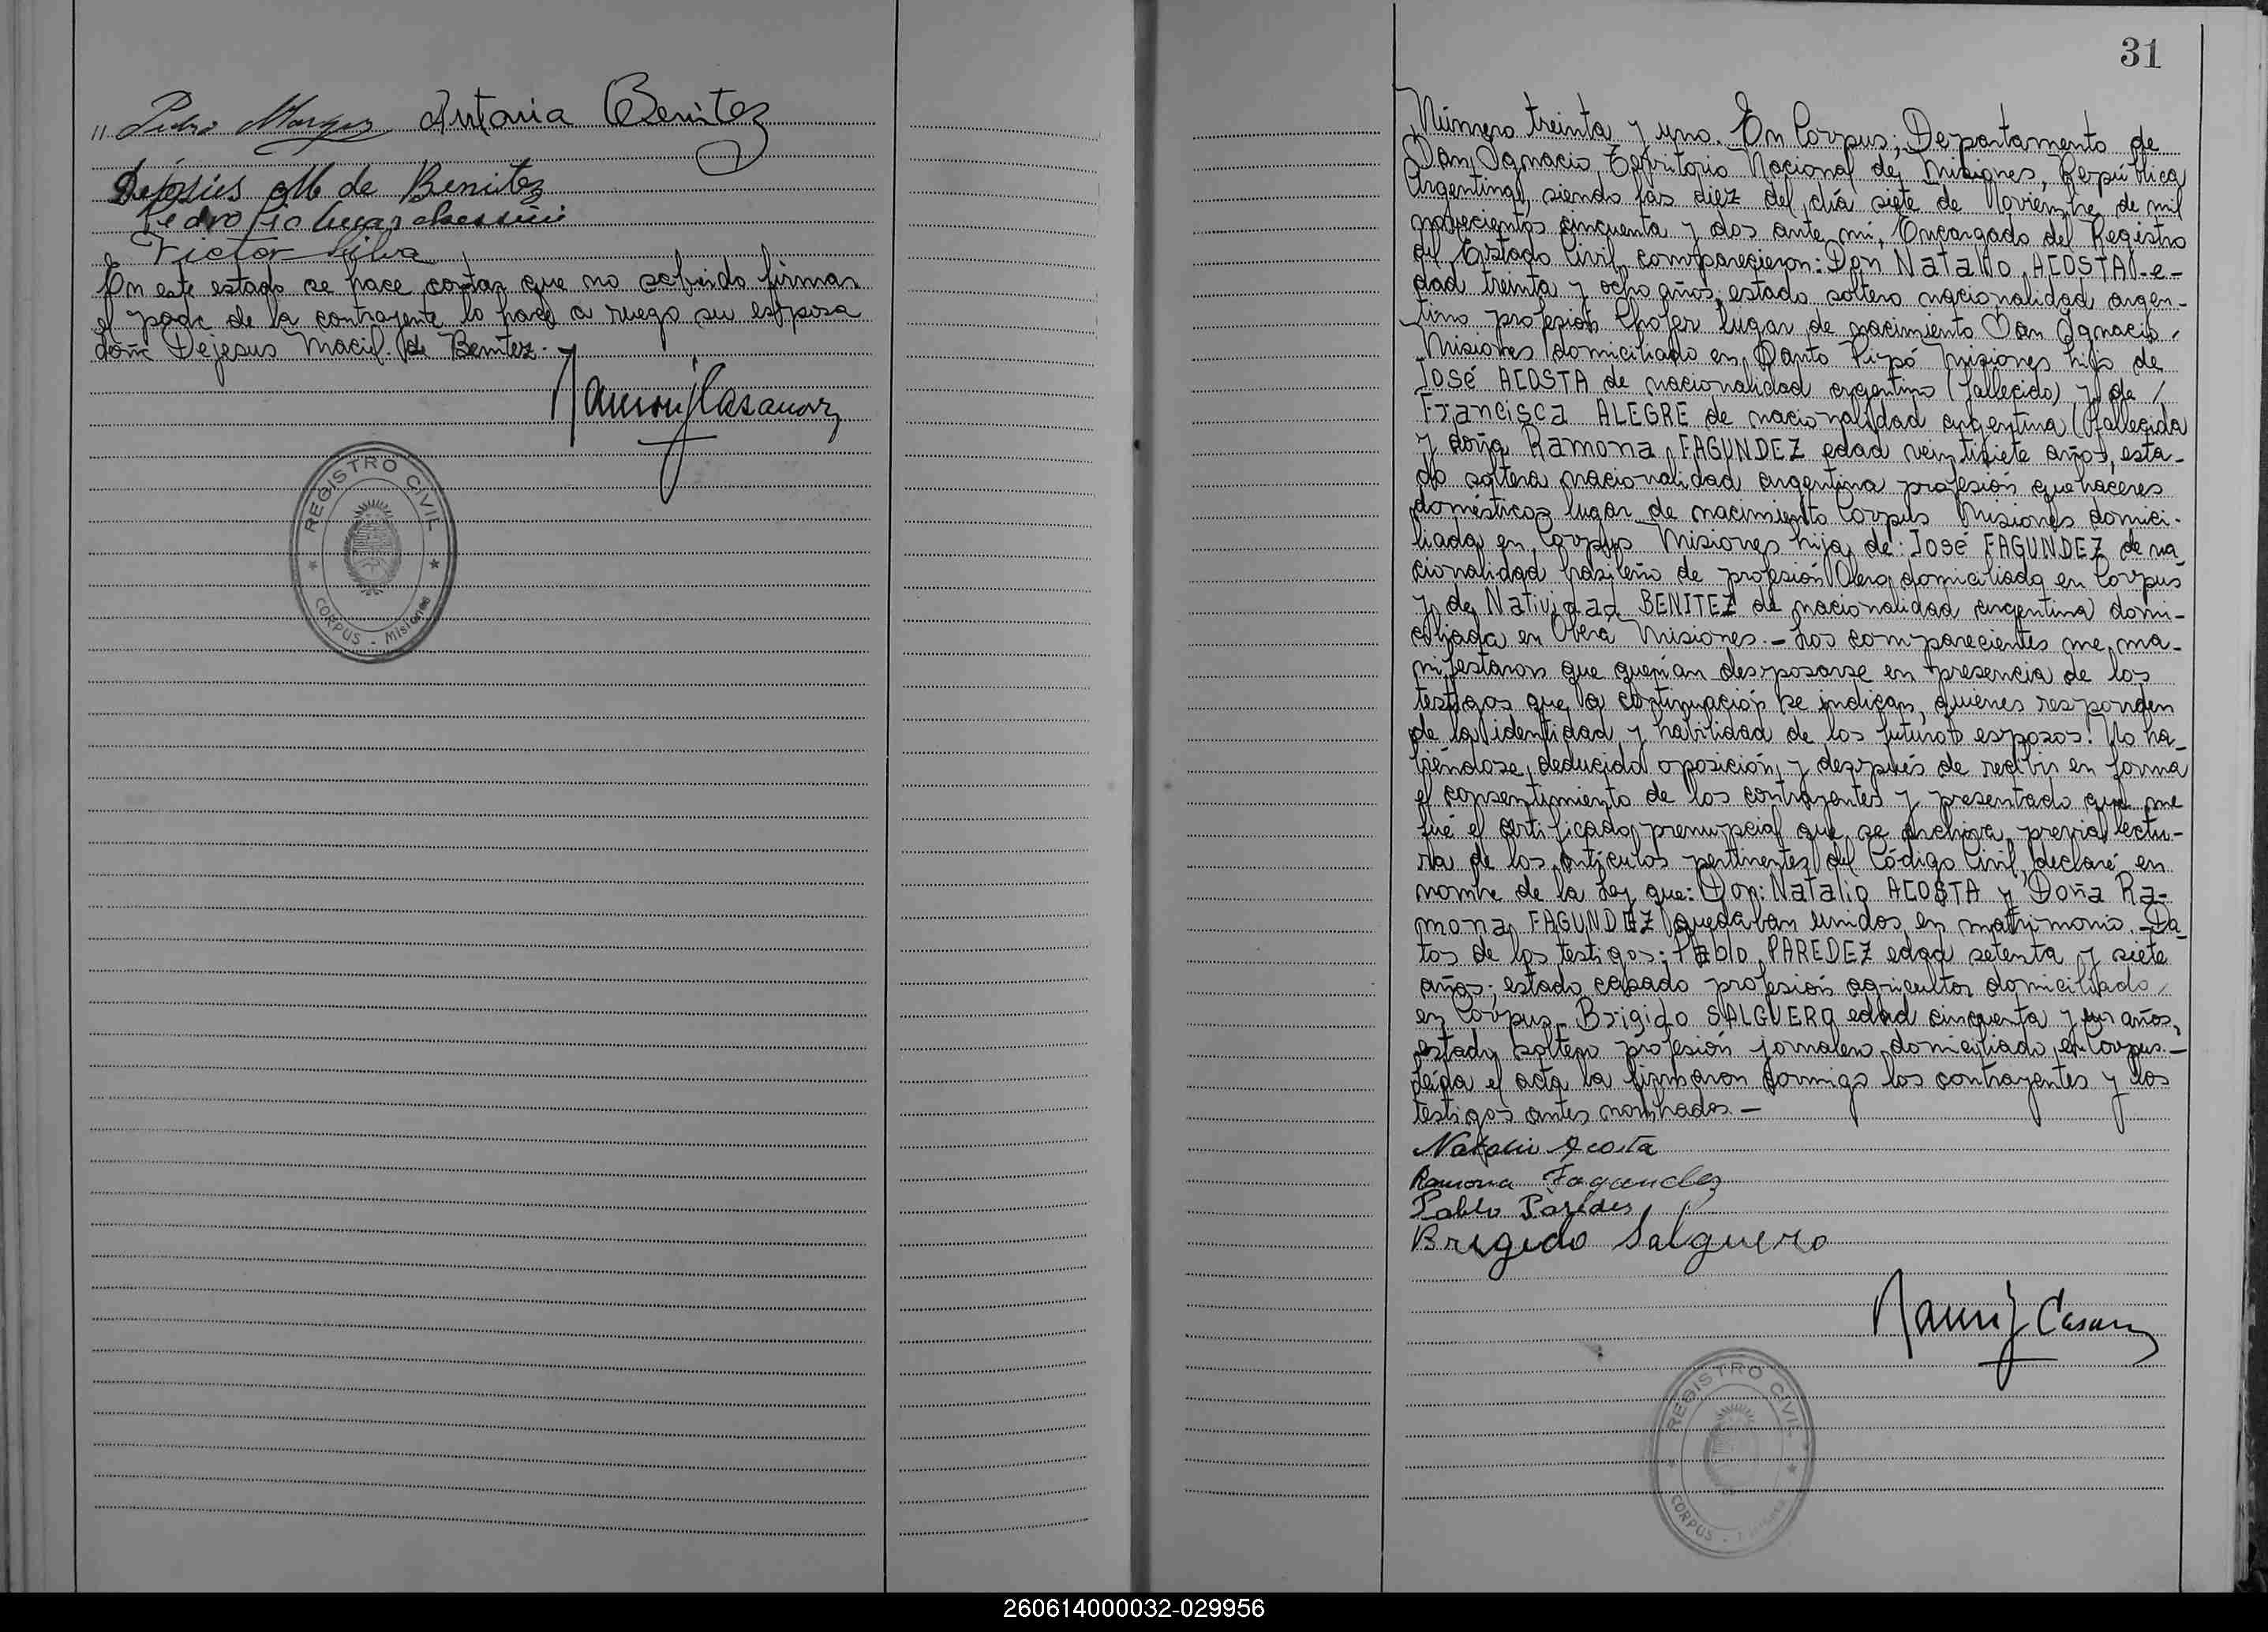 " Pedro Antonia Benitez
Dejesús M de Benitez
Pedro Pio
Victor Silva
En este estado se hace contar que no sabiendo firmar
el padr de la contrayente lo hace a ruego su esposa
doñ Dejesus Maciel de Benitez.-
Ramon J Casanova
REGISTRO CIVIL
CORPUS - Misiones
31
Número treinta y uno. En Corpus; Departamento de
San Ignacio, Territorio Nacional de Misiones, República
Argentina, siendo las diez del día siete de Noviembre de mil
novecientos cincuenta y dos ante mi, Encargado del Registro
del Estado Civil, comparecieron: Don Natalio ACOSTA e-
dad treinta y ocho años, estado soltero nacionalidad argen-
tino profesión Chofer lugar de nacimiento San Ignacio,
Misiones domiciliado en Santo Pipó Misiones hijo de
José ACOSTA de nacionalidad argentino (fallecido) y de /
Francisca ALEGRE de nacionalidad argentina (fallecida
y doña Ramona FAGUNDEZ edad veintisiete años, esta-
do soltera nacionalidad argentina profesión quehaceres
domésticos lugar de nacimiento Corpus Misiones domici-
liada en Corpus Misiones hija de: José FAGUNDEZ de na
cionalidad brasileño de profesión domiciliado en Corpus
y de Natividad BENITEZ de nacionalidad argentina domi-
ciliada en Oberá Misiones.- Los comparecientes me ma-
nifestaron que querían desposarse en presencia de los
testigos que a continuación se indican, quienes responden
de la identidad y habilidad de los futuros esposos. No ha-
biéndose deducido oposición y después de recibir en forma
el consentimiento de los contrayentes y presentado que me
fué el certificado prenupcial que se archiva, previa lectu-
ra de los artículos pertinentes del Código Civil, declaré en
nombre de la Ley que: Don: Natalio ACOSTA y Doña Ra-
mona FAGUNDEZ quedaban unidos en matrimonio.-Da-
tos de los testigos: Pablo PAREDEZ edad setenta y siete
años; estado casado profesión agricultor domiciliado /
en Corpus- Brigido SALGUERO edad cincuenta y un años,
estado soltero profesión jornalero domiciliado en Corpus.-
Leída el acta la firmaron conmigo los contrayentes y los
testigos antes nombrados.-
Natalio Acosta
Ramona Fagundez
Pablo Paredes
Brigido Salguero
Ramon J Casanova
REGISTRO CIVIL
CORPUS -
260614000032-029956